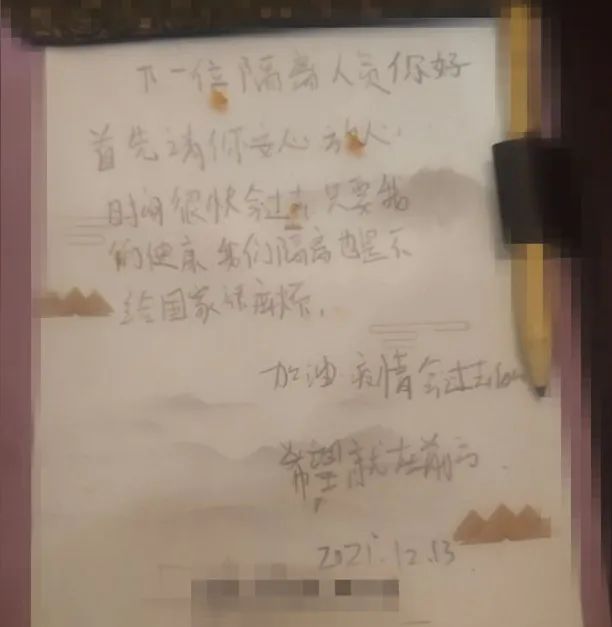 下一位隔离人员你好
首先请你安心放心
时间很快会过去 只要我
的健康 我们隔离也是不
给国家添麻烦，
加油 疫情会过去的
希望就在前方.
2021.12.13